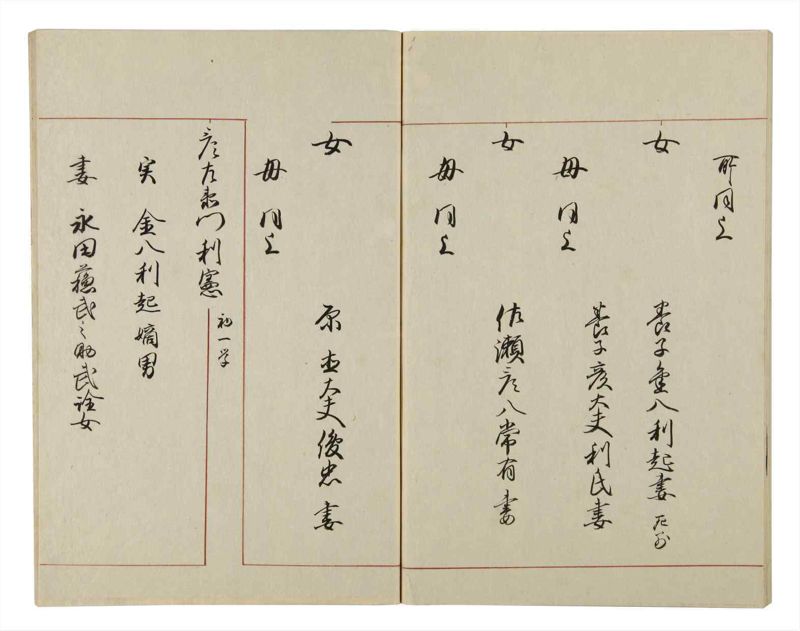 母同上
女
養子金八利起妻
母同上
養子彦大夫利氏妻
女
母同上
佐瀬彦八常有妻
女
母同上
原 大夫俊忠妻
彦左衛門利憲
初一学
実 金八利起嫡男
妻 永田 武之助武 女